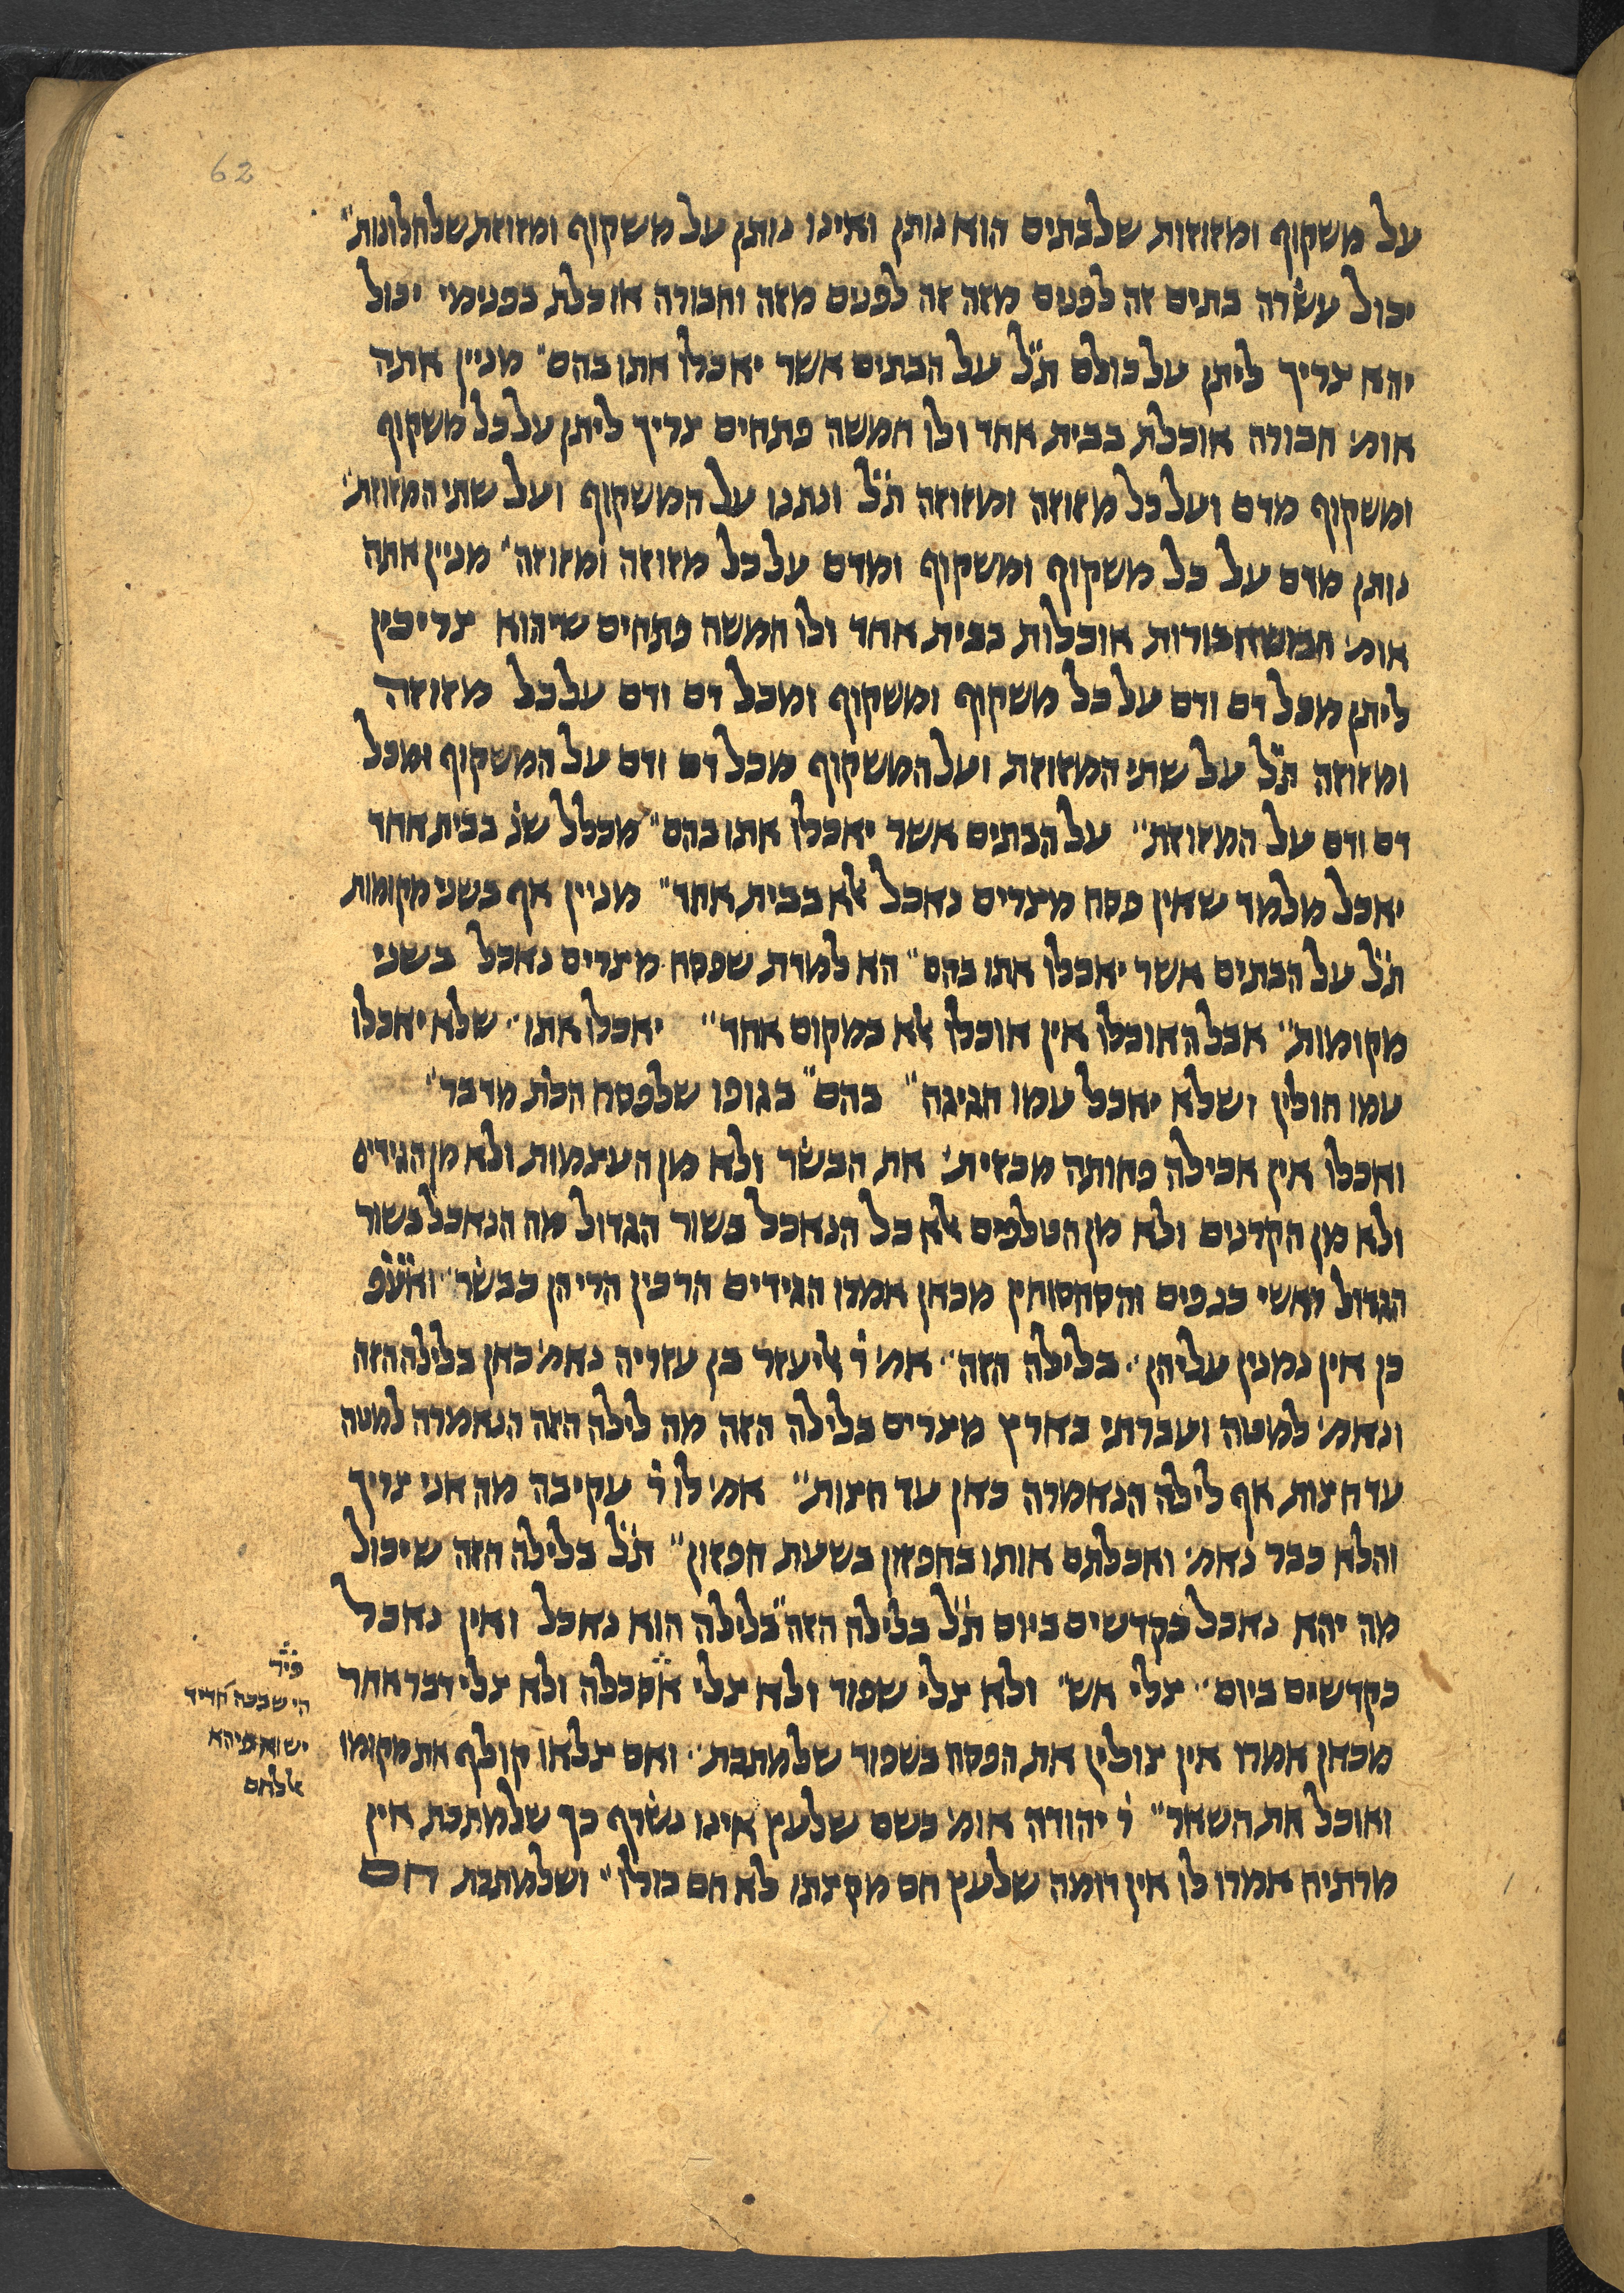 62
על משקוף ומזוזות שלבתים הוא נותן ואינו נותן על משקוף ומזוזת שלחלונות״
יכול עשרה בתים זה לפנים מזה זה לפנים מזה וחבורה אוכלת בפנימי יכול
יהא צריך ליתן על כולם ת״ל על הבתים אשר יאכלו אתו בהם״ מניין אתה
אומ׳ חבורה אוכלת בבית אחד ולו חמשה פתחים צריך ליתן על כל משקוף
ומשקוף מדם ועל כל מזוזה ומזוזה ת״ל ונתנו על המשקוף ועל שתי המזוזת׳
נותן מדם על כל משקוף ומשקוף ומדם על כל מזוזה ומזוזה״ מניין אתה
אומ׳ חמש חבורות אוכלות בבית אחד ולו חמשה פתחים שיהוא צריכין
ליתן מכל דם ודם על כל משקוף ומשקוף ומכל דם ודם על כל מזוזה
ומזוזה ת״ל על שתי המזוזת ועל המשקוף מכל דם ודם על המשקוף ומכל
דם ודם על המזוזת״ על הבתים אשר יאכלו אתו בהם״ מכלל שנ׳ בבית אחד
יאכל מלמד שאין פסח מצרים נאכל אלא בבית אחד״ מניין אף בשני מקומות
ת״ל על הבתים אשר יאכלו אתו בהם״ הא למדת שפסח מצרים נאכל בשני
מקומות״ אבל האוכלו אין אוכלו אלא במקום אחד״ יאכלו אתו״ שלא יאכלו
עמו חולין ושלא יאכל עמו חגיגה״ בהם״ בגופו שלפסח הכת׳ מדבר״
ואכלו אין אכילה פחותה מכזית׳ את הבשר ולא מן העצמות ולא מן הגידים
ולא מן הקרנים ולא מן הטלפים אלא כל הנאכל בשור הגדול מה הנאכל בשור
הגדול ראשי כנפים והסחסוחין מכאן אמרו הגידים הרכין הרי הן כבשר״ ואעפ
כן אין נמנין עליהן״ בלילה הזה״ אמ׳ ר׳ אליעזר בן עזריה נאמ׳ כאן בלילה הזה
ונאמ׳ למטה ועברתי בארץ מצרים בלילה הזה מה לילה הזה הנאמרה למטה
עד חצות אף לילה הנאמרה כאן עד חצות״ אמ׳ לו ר׳ עקיבה מה אני צריך
והלא כבר נאמ׳ ואכלתם אותו בחפזון בשעת חפזון״ ת״ל בלילה הזה שיכול
מה יהא נאכל כקדשים ביום ת״ל בלילה הזה״ בלילה הוא נאכל ואין נאכל
כקדשים ביום״ צלי אש״ ולא צלי שפוד ולא צלי אסכלה ולא צלי דבר אחר
מכאן אמרו אין צולין את הפסח בשפוד שלמתכת״ ואם צלאו קולף את מקומו
ואוכל את השאר״ ר׳ יהודה אומ׳ כשם שלעץ אינו נשרף כך שלמתכת אין
מרתיח אמרו לו אין דומה שלעץ חם מקצתו לא חם כולו״ ושלמתכת חם
פיר׳
הי שבכה חדיד
אללחם